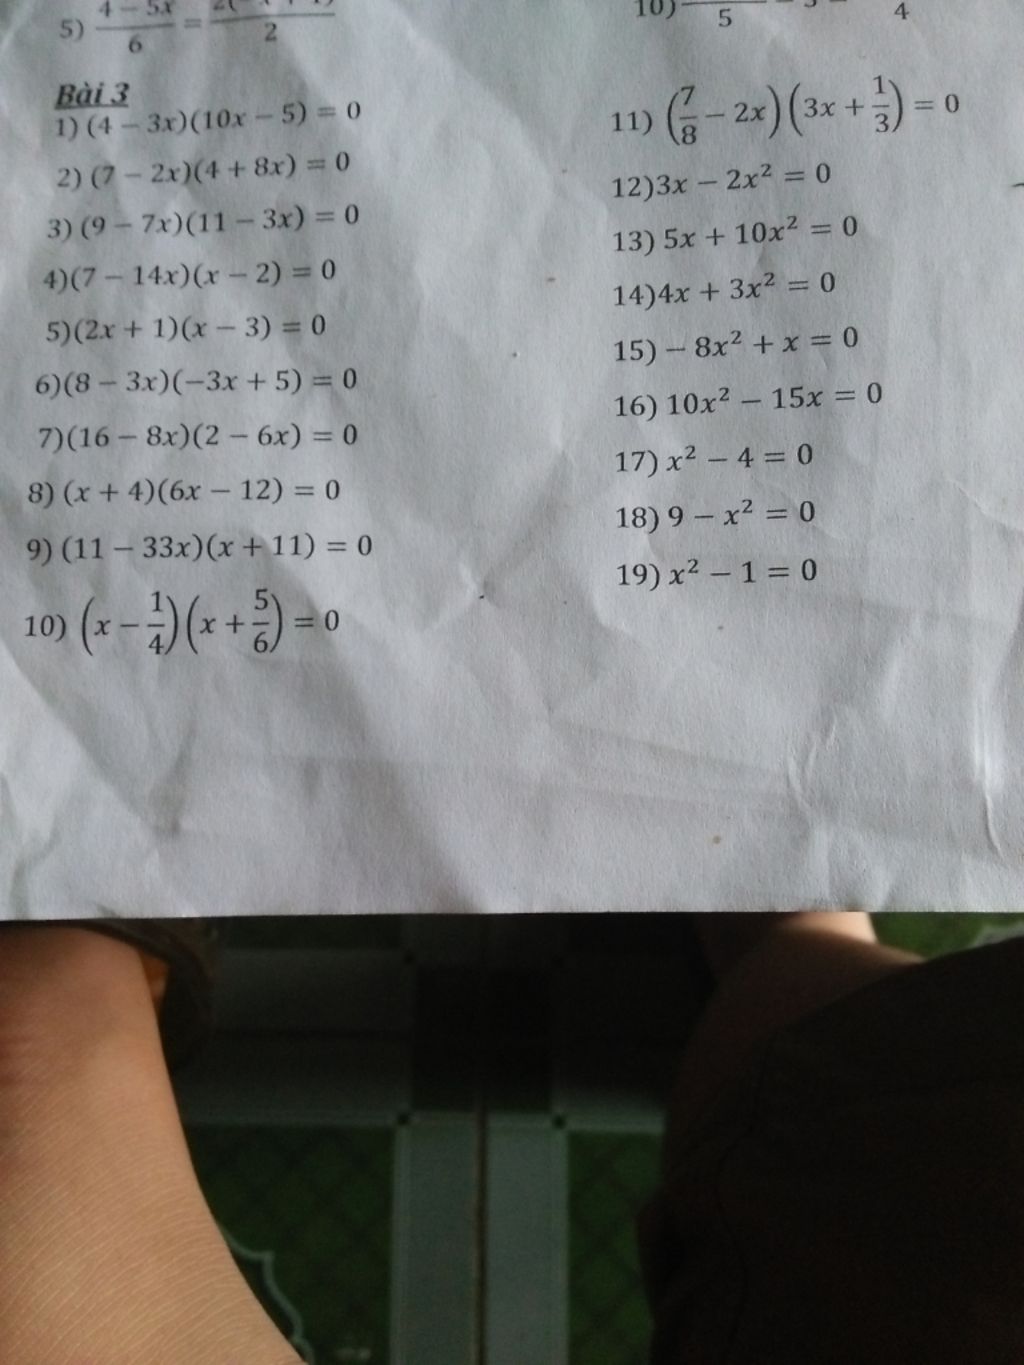 5) (4 − 5x)/6 =
2
10)
5
4
Bài 3
1) (4 − 3x)(10x − 5) = 0
2) (7 − 2x)(4 + 8x) = 0
3) (9 − 7x)(11 − 3x) = 0
4)(7 − 14x)(x − 2) = 0
5)(2x + 1)(x − 3) = 0
6)(8 − 3x)(−3x + 5) = 0
7)(16 − 8x)(2 − 6x) = 0
8) (x + 4)(6x − 12) = 0
9) (11 − 33x)(x + 11) = 0
10) (x − 1/4)(x + 5/6) = 0
11) (7/8 − 2x)(3x + 1/3) = 0
12)3x − 2x² = 0
13) 5x + 10x² = 0
14)4x + 3x² = 0
15) − 8x² + x = 0
16) 10x² − 15x = 0
17) x² − 4 = 0
18) 9 − x² = 0
19) x² − 1 = 0